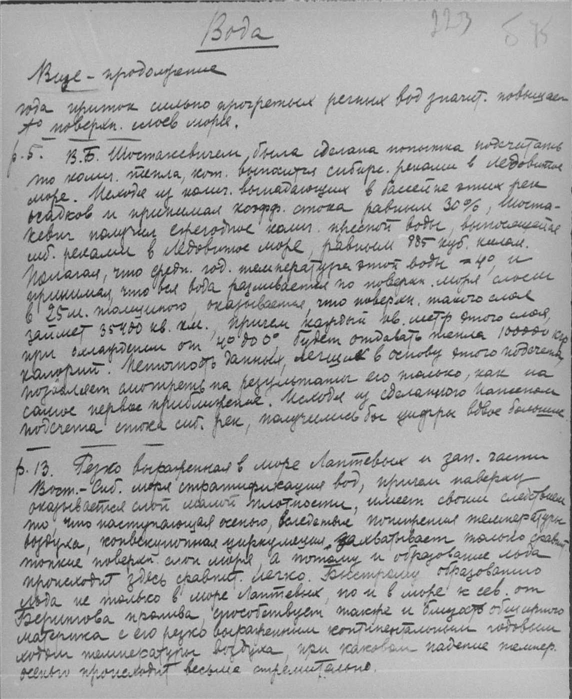 223 Б 75
Вода
Визе – продолжение
года приток сильно прогретых речных вод значит. повышает
t° поверхн. слоев моря.
p. 5. В.Б. Шостаковичем была сделана попытка подсчитать
то колич. тепла, кот. выносится сибирс. реками в Ледовитое
море. Исходя из колич. выпадающих в бассейне этих рек
осадков и принимая коэфф. стока равным 30%, Шоста-
кевич получил ежегодное колич. пресной воды, выносящейся
сиб. реками в Ледовитое море, равным 885 куб. килом.
Полагая, что средн. год. температура этой воды = 4°, и
принимая, что вся вода разливается по поверхн. моря слоем
в 25 м. толщиною, оказывается, что поверхн. такого слоя
займет 35400 кв. км., причем каждый кв. метр этого слоя,
при охлаждении от 4° до 0°, будет отдавать тепла 100000 кгр
калорий. Неточность данных, легших в основу этого подсчета,
позволяет смотреть на результаты его только, как на
самое первое приближение. Исходя из сделанного
подсчета стока сиб. рек, получились бы цифры вдвое большие.
p. 13. Резко выраженная в море Лаптевых и зап. части
Вост.-Сиб. моря стратификация вод, причем наверху
оказывается слой малой плотности, имеет своим следствием
то что наступающая осенью, вследствие понижения температуры
воздуха, конвекционная циркуляция захватывает только сравн.
тонкие поверхн. слои моря, а потому и образование льда
происходит здесь сравнит. легко. Быстрому образованию
льда не только в море Лаптевых, но и в море к сев. от
Берингова пролива, способствует также и близость обширного
материка с его резко выраженным континентальным годовым
ходом температуры воздуха, при каковом падение темпер.
осенью происходит весьма стремительно.